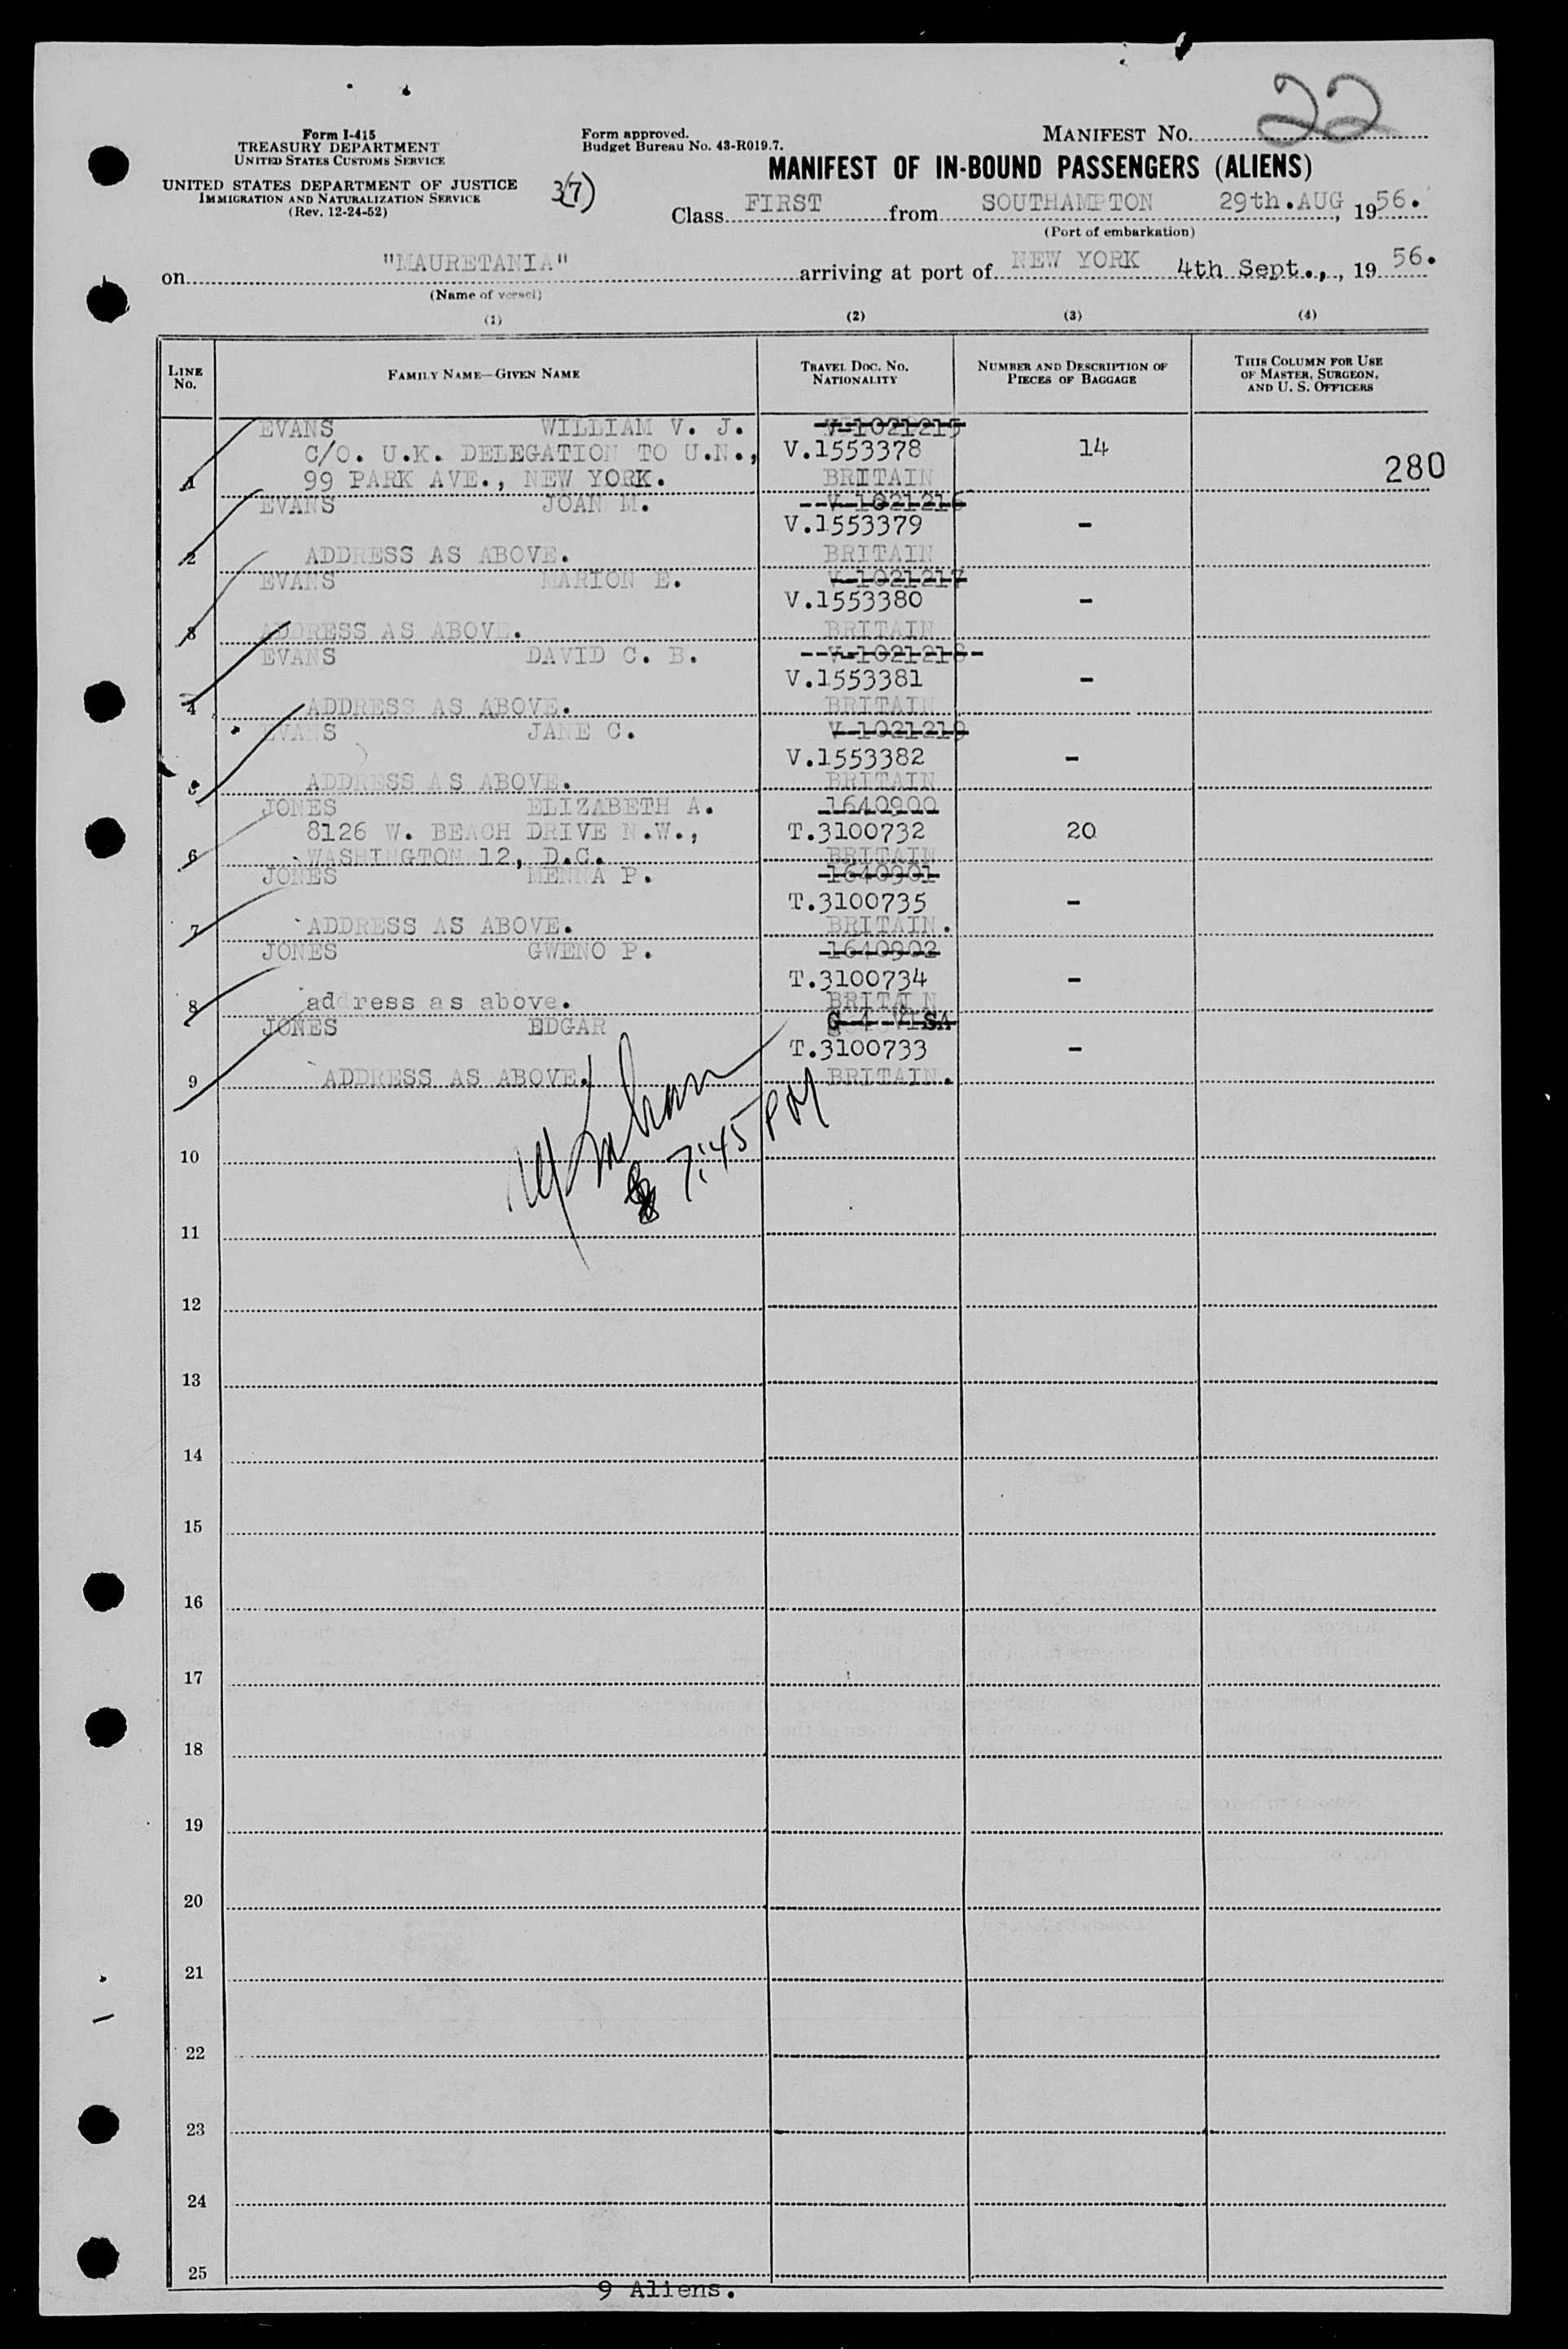 22
Form I-415
TREASURY DEPARTMENT
UNITED STATES CUSTOMS SERVICE
UNITED STATES DEPARTMENT OF JUSTICE
IMMIGRATION AND NATURALIZATION SERVICE
(Rev. 12-24-52)
3(7)
Form approved.
Budget Bureau No. 43-R019.7.
MANIFEST NO.
MANIFEST OF IN-BOUND PASSENGERS (ALIENS)
Class FIRST from SOUTHAMPTON 29th.AUG, 1956.
(Port of embarkation)
on "MAURETANIA" arriving at port of NEW YORK 4th Sept., , 19 56.
(Name of vessel)
(1) (2) (3) (4)
LINE No. FAMILY NAME—GIVEN NAME TRAVEL DOC. NO. NATIONALITY NUMBER AND DESCRIPTION OF PIECES OF BAGGAGE THIS COLUMN FOR USE OF MASTER, SURGEON, AND U. S. OFFICERS
EVANS WILLIAM V. J. V-1021215
C/O. U.K. DELEGATION TO U.N., V.1553378 14
1 99 PARK AVE., NEW YORK. BRITAIN 280
EVANS JOAN M. --V-1021216
V.1553379 -
2 ADDRESS AS ABOVE. BRITAIN
EVANS MARION E. V-1021217
V.1553380 -
3 ADDRESS AS ABOVE. BRITAIN
EVANS DAVID C. B. --V-1021218-
V.1553381 -
4 ADDRESS AS ABOVE. BRITAIN
EVANS JANE C. V-1021219
V.1553382 -
5 ADDRESS AS ABOVE. BRITAIN
JONES ELIZABETH A. 1640900
8126 W. BEACH DRIVE N.W., T.3100732 20
6 WASHINGTON 12, D.C. BRITAIN
JONES MENNA P. 1640901
T.3100735 -
7 ADDRESS AS ABOVE. BRITAIN.
JONES GWENO P. 1640902
T.3100734 -
8 address as above. BRITAIN
JONES EDGAR G-4-VISA
T.3100733 -
9 ADDRESS AS ABOVE. BRITAIN.
7:45 PM
10
11
12
13
14
15
16
17
18
19
20
21
22
23
24
25
9 Aliens.